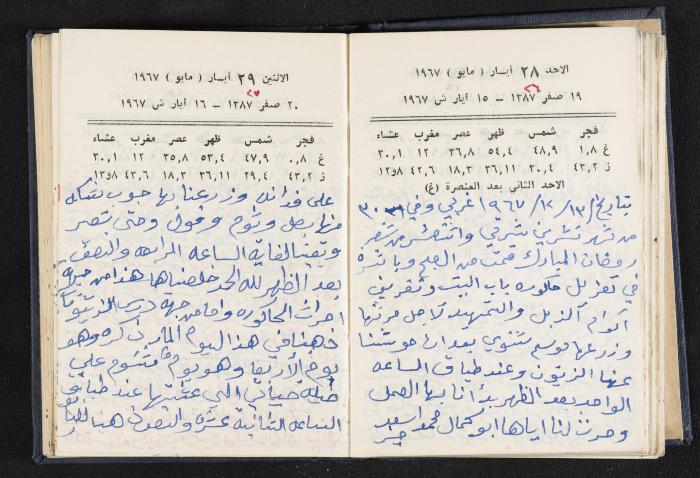 الاحد ٢٨ أيـار ( مايو ) ١٩٦٧
٢٦
١٩ صفر ١٣٨٧ – ١٥ أيار ش ١٩٦٧
فجر شمس ظهر عصر مغرب عشاء
غ ١,٨ ٤٨,٩ ٥٤,٤ ٣٦,٨ ١٢ ٣٠,١
ز ٤٣,٢ ٣٠,٤ ٣٦,١١ ١٨,٣ ٤٢,٦ ١٣٩٨
الاحد الثاني بعد العنصرة (غ)
بتاريخ ١٣ / ١٢ / ١٩٦٧ غربي وفي ٣٠
من شهر تشرين شرقي واثنعشر من شهر
رمضان المبارك قمت من الصبح وباشرة
في تعزيل حاكورة باب البيت وتفريق
أكوام الزبل والتمهيد لاجل حرثها
وزرعها موسم شتوي بعد ان حوشنا
عنها الزيتون وعند طباق الساعه
الواحده بعد الظهر بدأنا بها العمل
وحرث لنا اياها ابو كمال محمد اسعد
الاثنين ٢٩ أيـار ( مايو ) ١٩٦٧
٢٧
٢٠ صفر ١٣٨٧ – ١٦ أيار ش ١٩٦٧
فجر شمس ظهر عصر مغرب عشاء
غ ٠,٨ ٤٧,٩ ٥٣,٤ ٣٥,٨ ١٢ ٣٠,١
ز ٤٣,٢ ٢٩,٤ ٣٦,١١ ١٨,٣ ٤٢,٦ ١٣٩٨
على فدانه وزرعنا بها حبوب شكله
منها بصل وثوم وفول وحتى بصر
وبقينا لغاية الساعه الرابعه والنصف
بعد الظهر لله الحمد خلصناها هذا من جهة
احراث الحاكوره واما من جهة دريس الزيتون
ذهبنا في هذا اليوم المار ذكره وهو
يوم الأربعا وهو يوم متشوم علي
طيلة حياتي التي عشتها عند طباق
الساعه الثانية عشره والنصف هنا